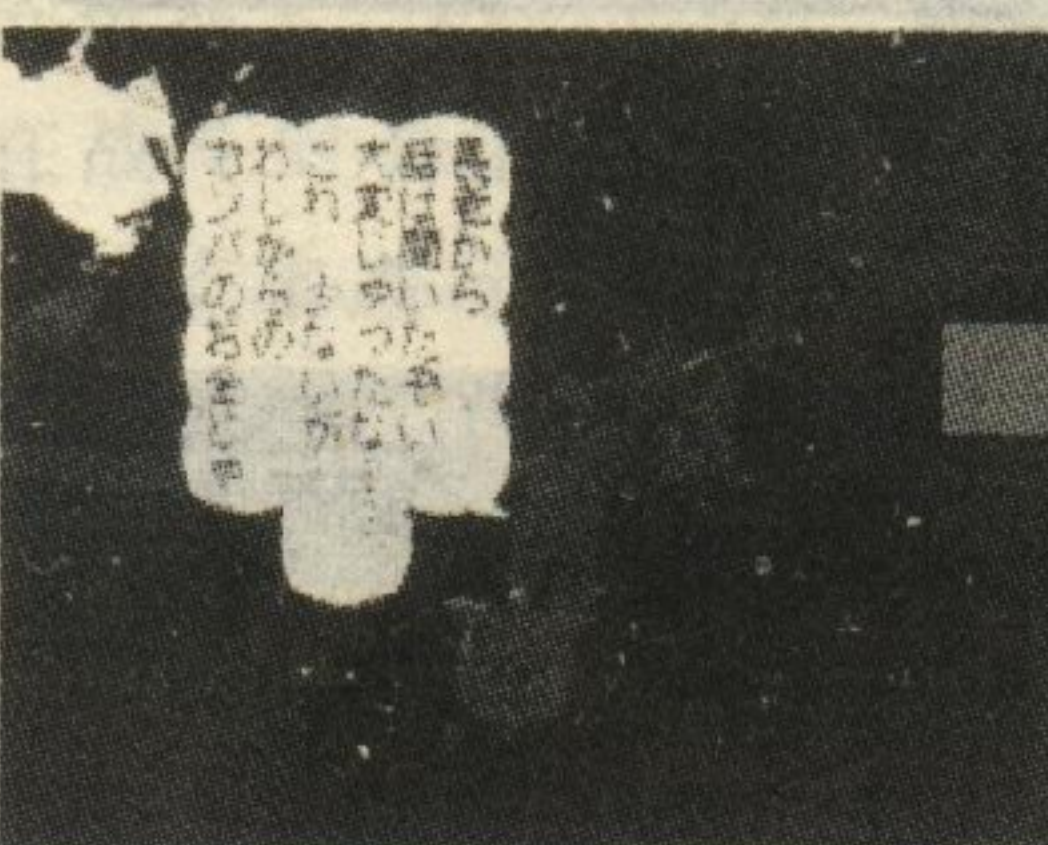 長老から
話は聞いたぞい
大変じゃったな……
これ 少ないが
わしからの
カンパのお金じゃ